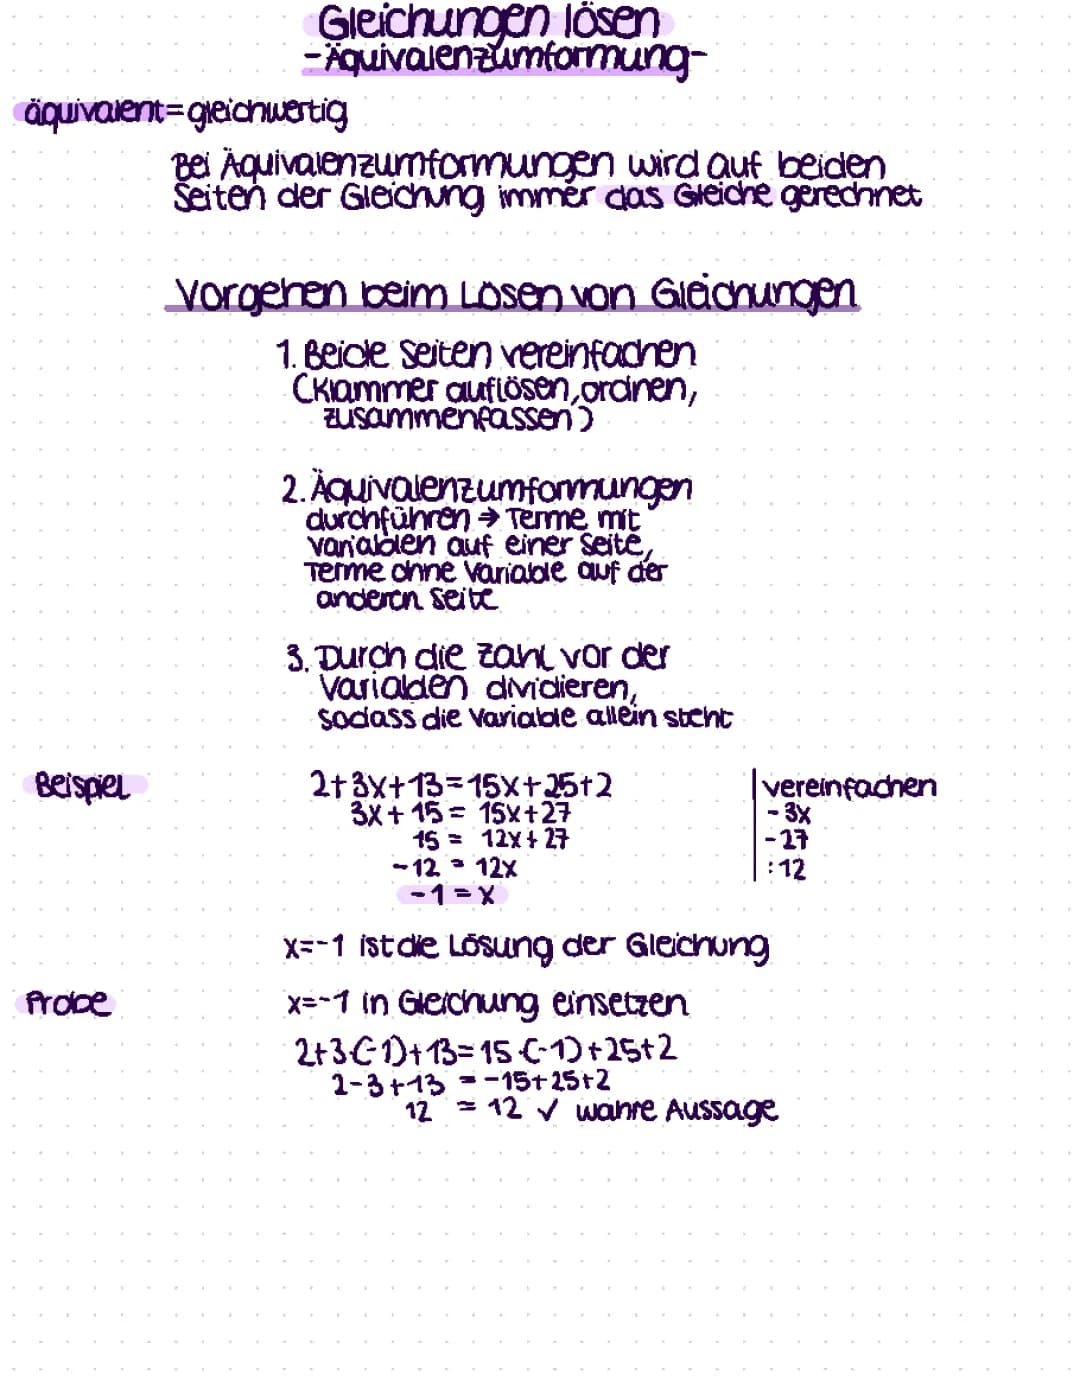 Gleichungen lösen
-Äquivalenzumformung-
äquivalent=gleichwertig
Bei Äquivalenzumformungen wird auf beiden
Seiten der Gleichung immer das Gleiche gerechnet
Vorgehen beim Lösen von Gleichungen
1. Beide Seiten vereinfachen
(Klammer auflösen, ordnen,
zusammenfassen)
2. Äquivalenzumformungen
durchführen → Terme mit
Variablen auf einer Seite,
Terme ohne Variable auf der
anderen Seite
3. Durch die Zahl vor der
Variablen dividieren,
sodass die Variable allein steht
Beispiel 2+3x+13=15x+25+2 | vereinfachen
3x+15 = 15x+27 | -3x
15 = 12x+27 | -27
-12 = 12x | :12
-1 = x
x=-1 ist die Lösung der Gleichung
Probe x=-1 in Gleichung einsetzen
2+3·(-1)+13=15·(-1)+25+2
2-3+13 = -15+25+2
12 = 12 ✓ wahre Aussage